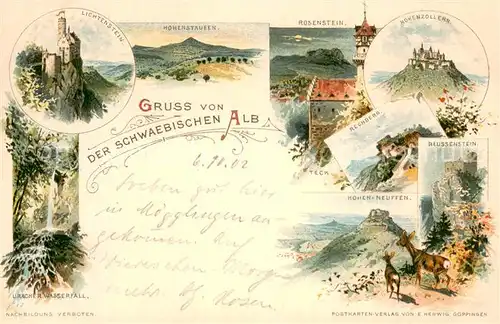 LICHTENSTEIN
HOHENSTAUFEN.
ROSENSTEIN.
HOHENZOLLERN.
GRUSS VON
DER SCHWAEBISCHEN ALB
RECHBERG.
REUSSENSTEIN.
TECK
6.10.02
Soeben gut hier
in Mögglingen an-
gekommen. Auf
HOHEN-NEUFFEN.
URACHER WASSERFALL.
NACHBILDUNG VERBOTEN.
POSTKARTEN-VERLAG VON E. HERWIG, GÖPPINGEN
ansichtskarten-center.de